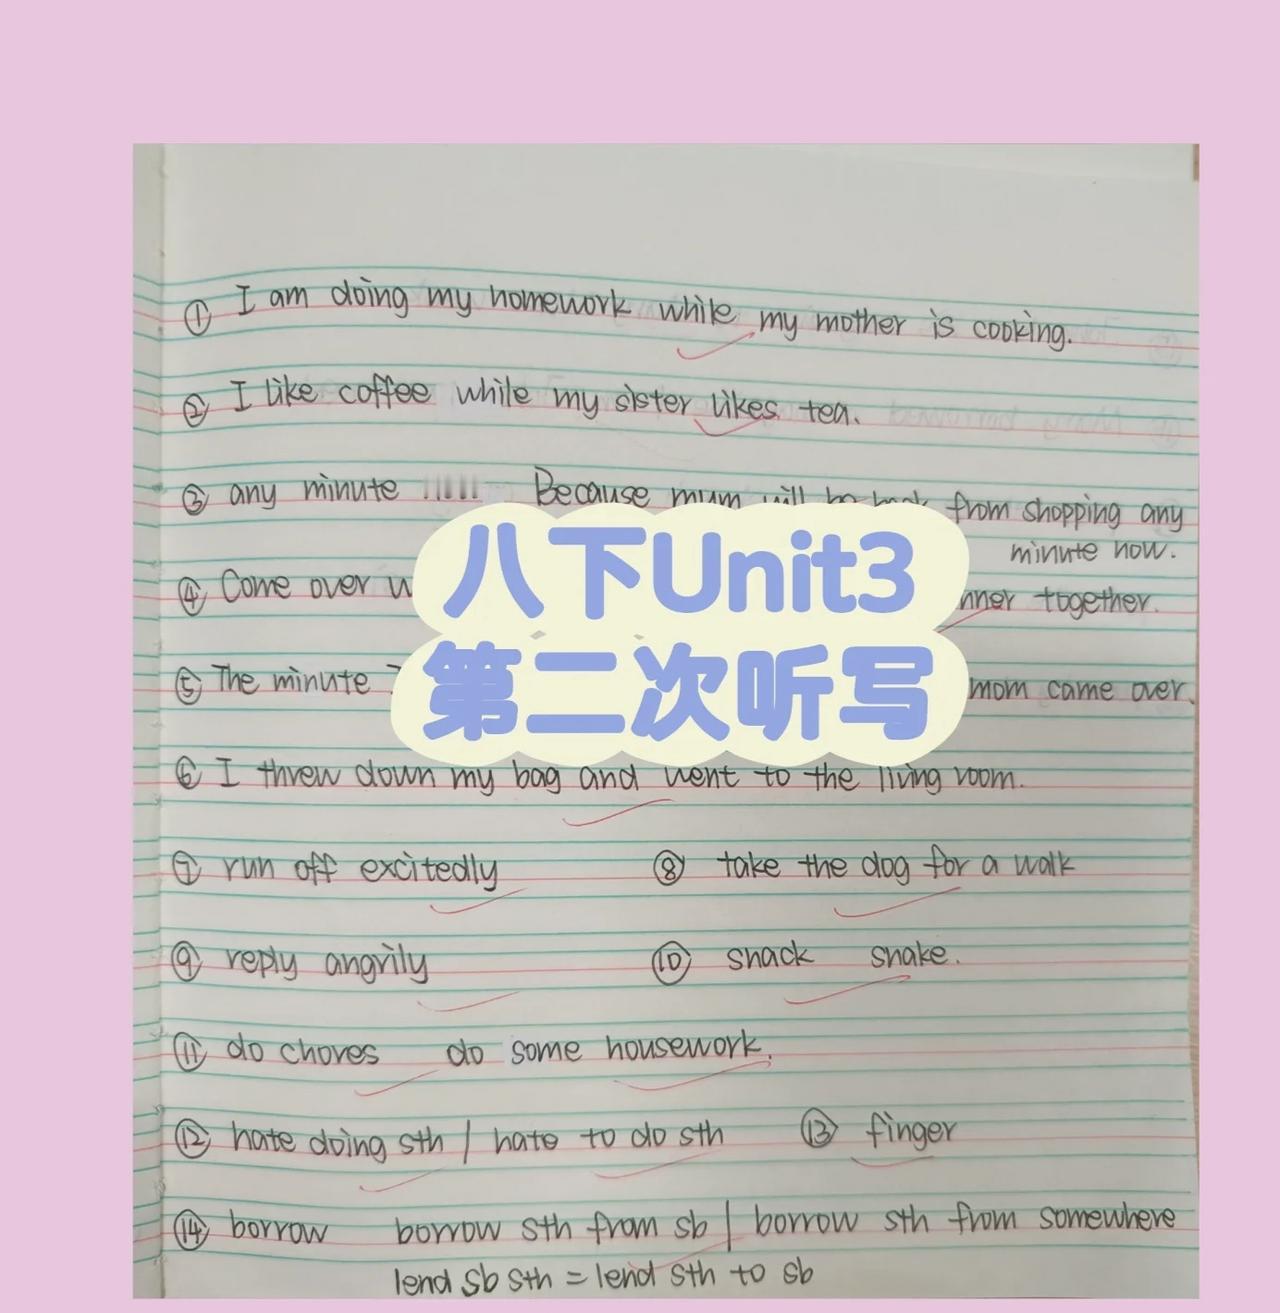 ① I am doing my homework while my mother is cooking.
② I like coffee while my sister likes tea.
③ any minute Because mum will be back from shopping any
minute now.
④ Come over nner together.
八下Unit3
第二次听写
⑤ The minute mom came over.
⑥ I threw down my bag and went to the living room.
⑦ run off excitedly ⑧ take the dog for a walk
⑨ reply angrily ⑩ snack snake.
⑪ do chores do some housework.
⑫ hate doing sth / hate to do sth ⑬ finger
⑭ borrow borrow sth from sb | borrow sth from somewhere
lend sb sth = lend sth to sb